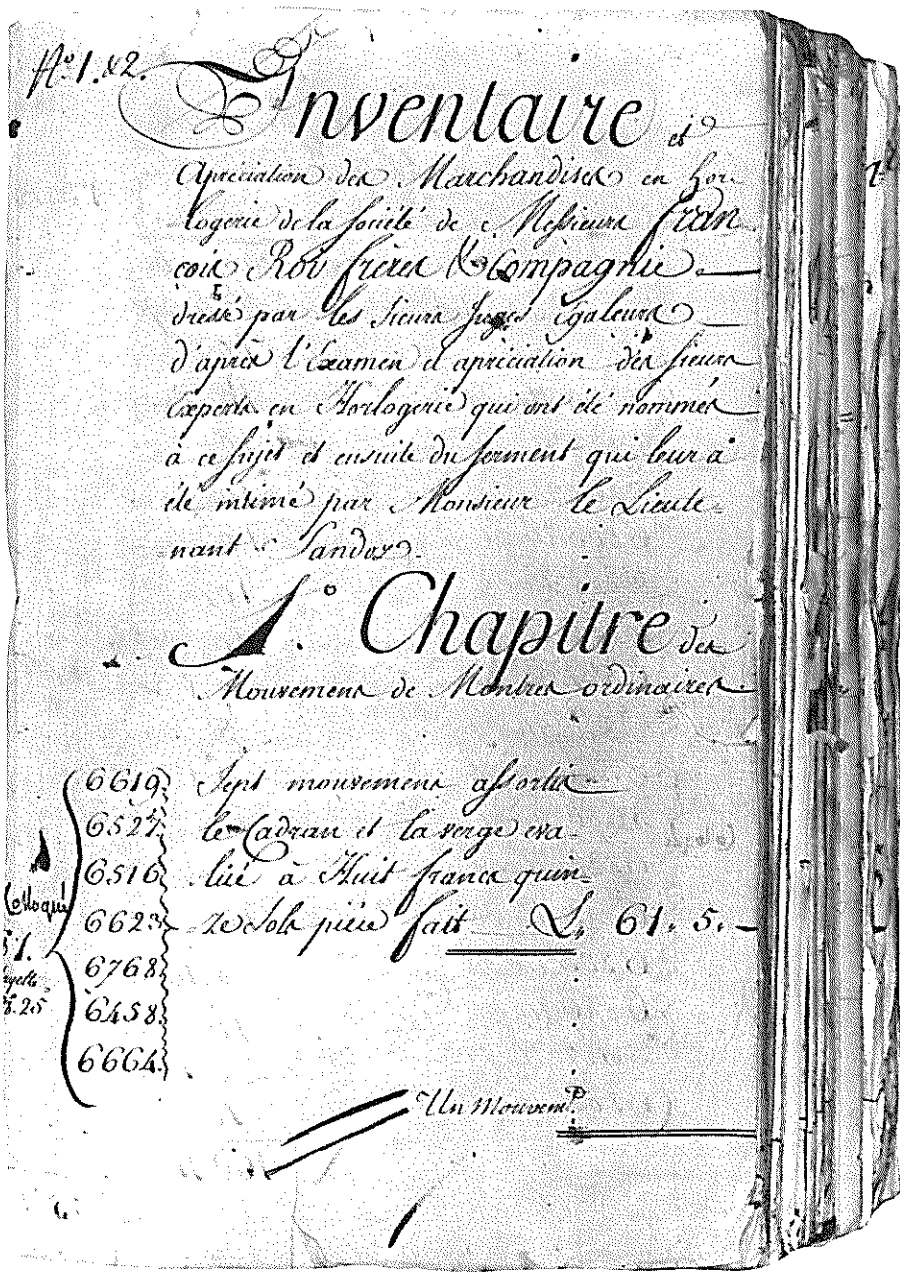 No. 1. & 2.
Inventaire et
Apréciation des Marchandises en hor-
logerie de la Société de Messieurs Fran
cois Roy frères & Compagnie
dressé par les Sieurs Juges Egaleurs
d'après l'Examen et apréciation des Sieurs
Experts en Horlogerie qui ont été nommés
à ce Sujet et ensuite du serment qui leur à
été intimé par Monsieur le Lieute-
nant Sandoz.
1.° Chapitre des
Mouvemens de Montres ordinaires
6619 Sept mouvemens assortis
6527 le Cadran et la verge eva-
6516 lüé à Huit francs quin-
Colloqué
6623 ze Sols pièce fait L. 61. 5.
51.
6768
6458
6664
Un Mouvemt.